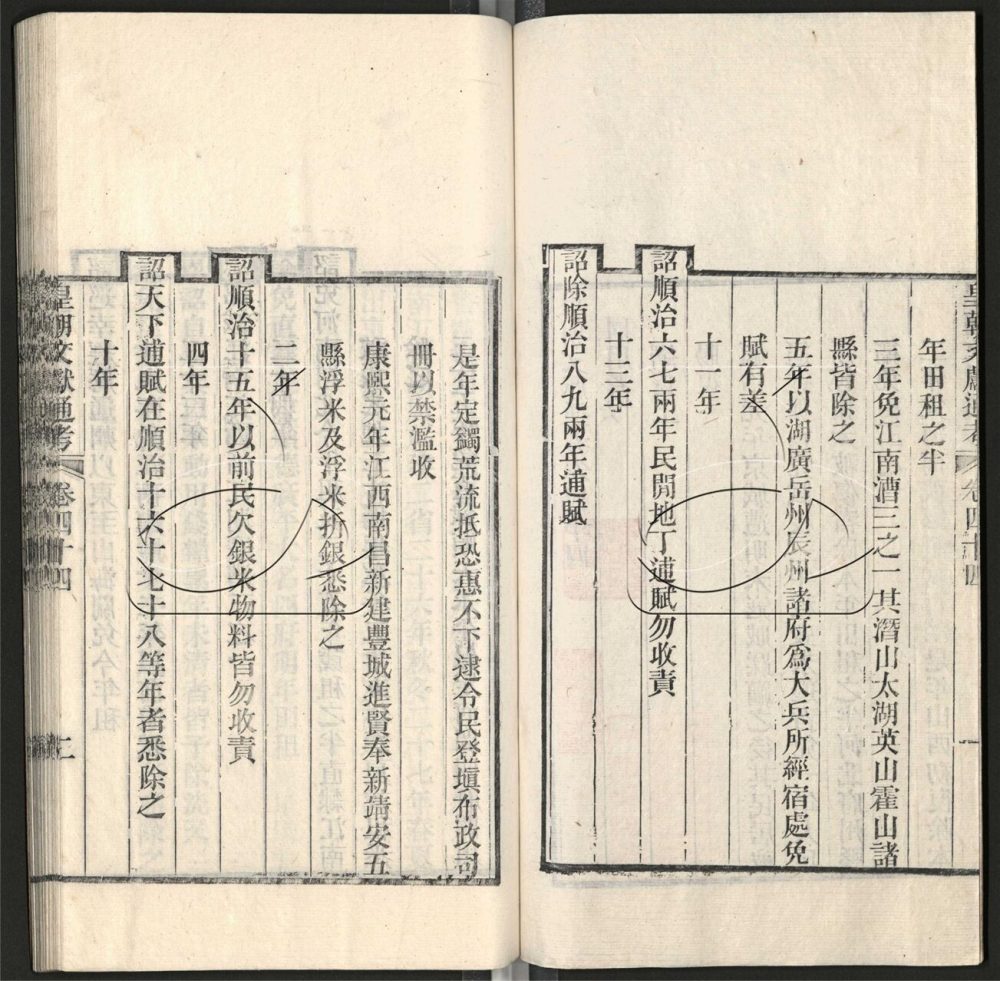 皇朝文獻通考 卷四十四 一
年田租之半
三年免江南漕三之一其潛山太湖英山霍山諸
縣皆除之
五年以湖廣岳州辰州諸府爲大兵所經宿處免
賦有差
十一年
詔順治六七兩年民間地丁逋賦勿收責
十三年
詔除順治八九兩年逋賦
是年定蠲荒流抵恐惠不下逮令民登填布政司
冊以禁濫收
康熙元年江西南昌新建豐城進賢奉新靖安五
縣浮米及浮米折銀悉除之
二年
詔順治十五年以前民欠銀米物料皆勿收責
四年
詔天下逋賦在順治十六十七十八等年者悉除之
十年
皇朝文獻通考 卷四十四 二